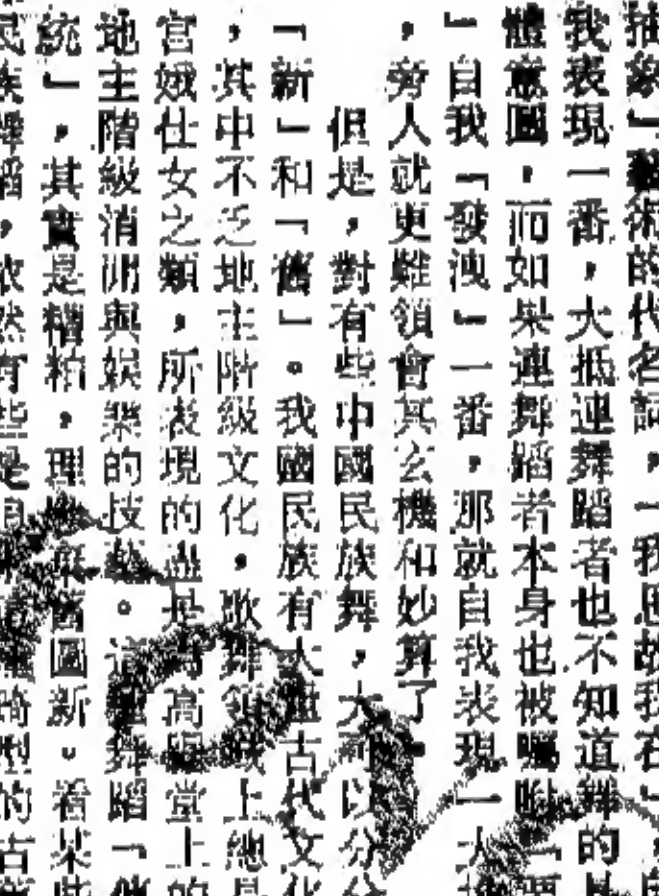 抽象」藝術的代名詞，「我思故我在」，
我表現一番，大抵連舞蹈者也不知道舞的
體意圖，而如果連舞蹈者本身也被囑咐「要
」自我「發洩」一番，那就自我表現一大
，旁人就更難領會其玄機和妙算了
但是，對有些中國民族舞，大可以分
「新」和「舊」。我國民族有大量古代文化
，其中不乏地主階級文化，歌舞領域上總是
宮娥仕女之類，所表現的盡是高堂上的
地主階級消閒與娛樂的技藝。這種舞蹈「
統」，其實是糟粕，理應棄舊圖新。看某些
民族舞蹈，依然有些是畸型的古